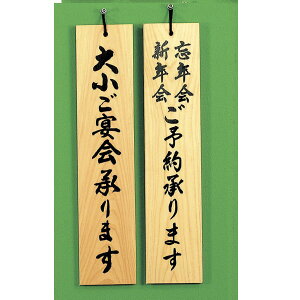 忘年会
新年会
ご予約承ります
大小ご宴会承ります